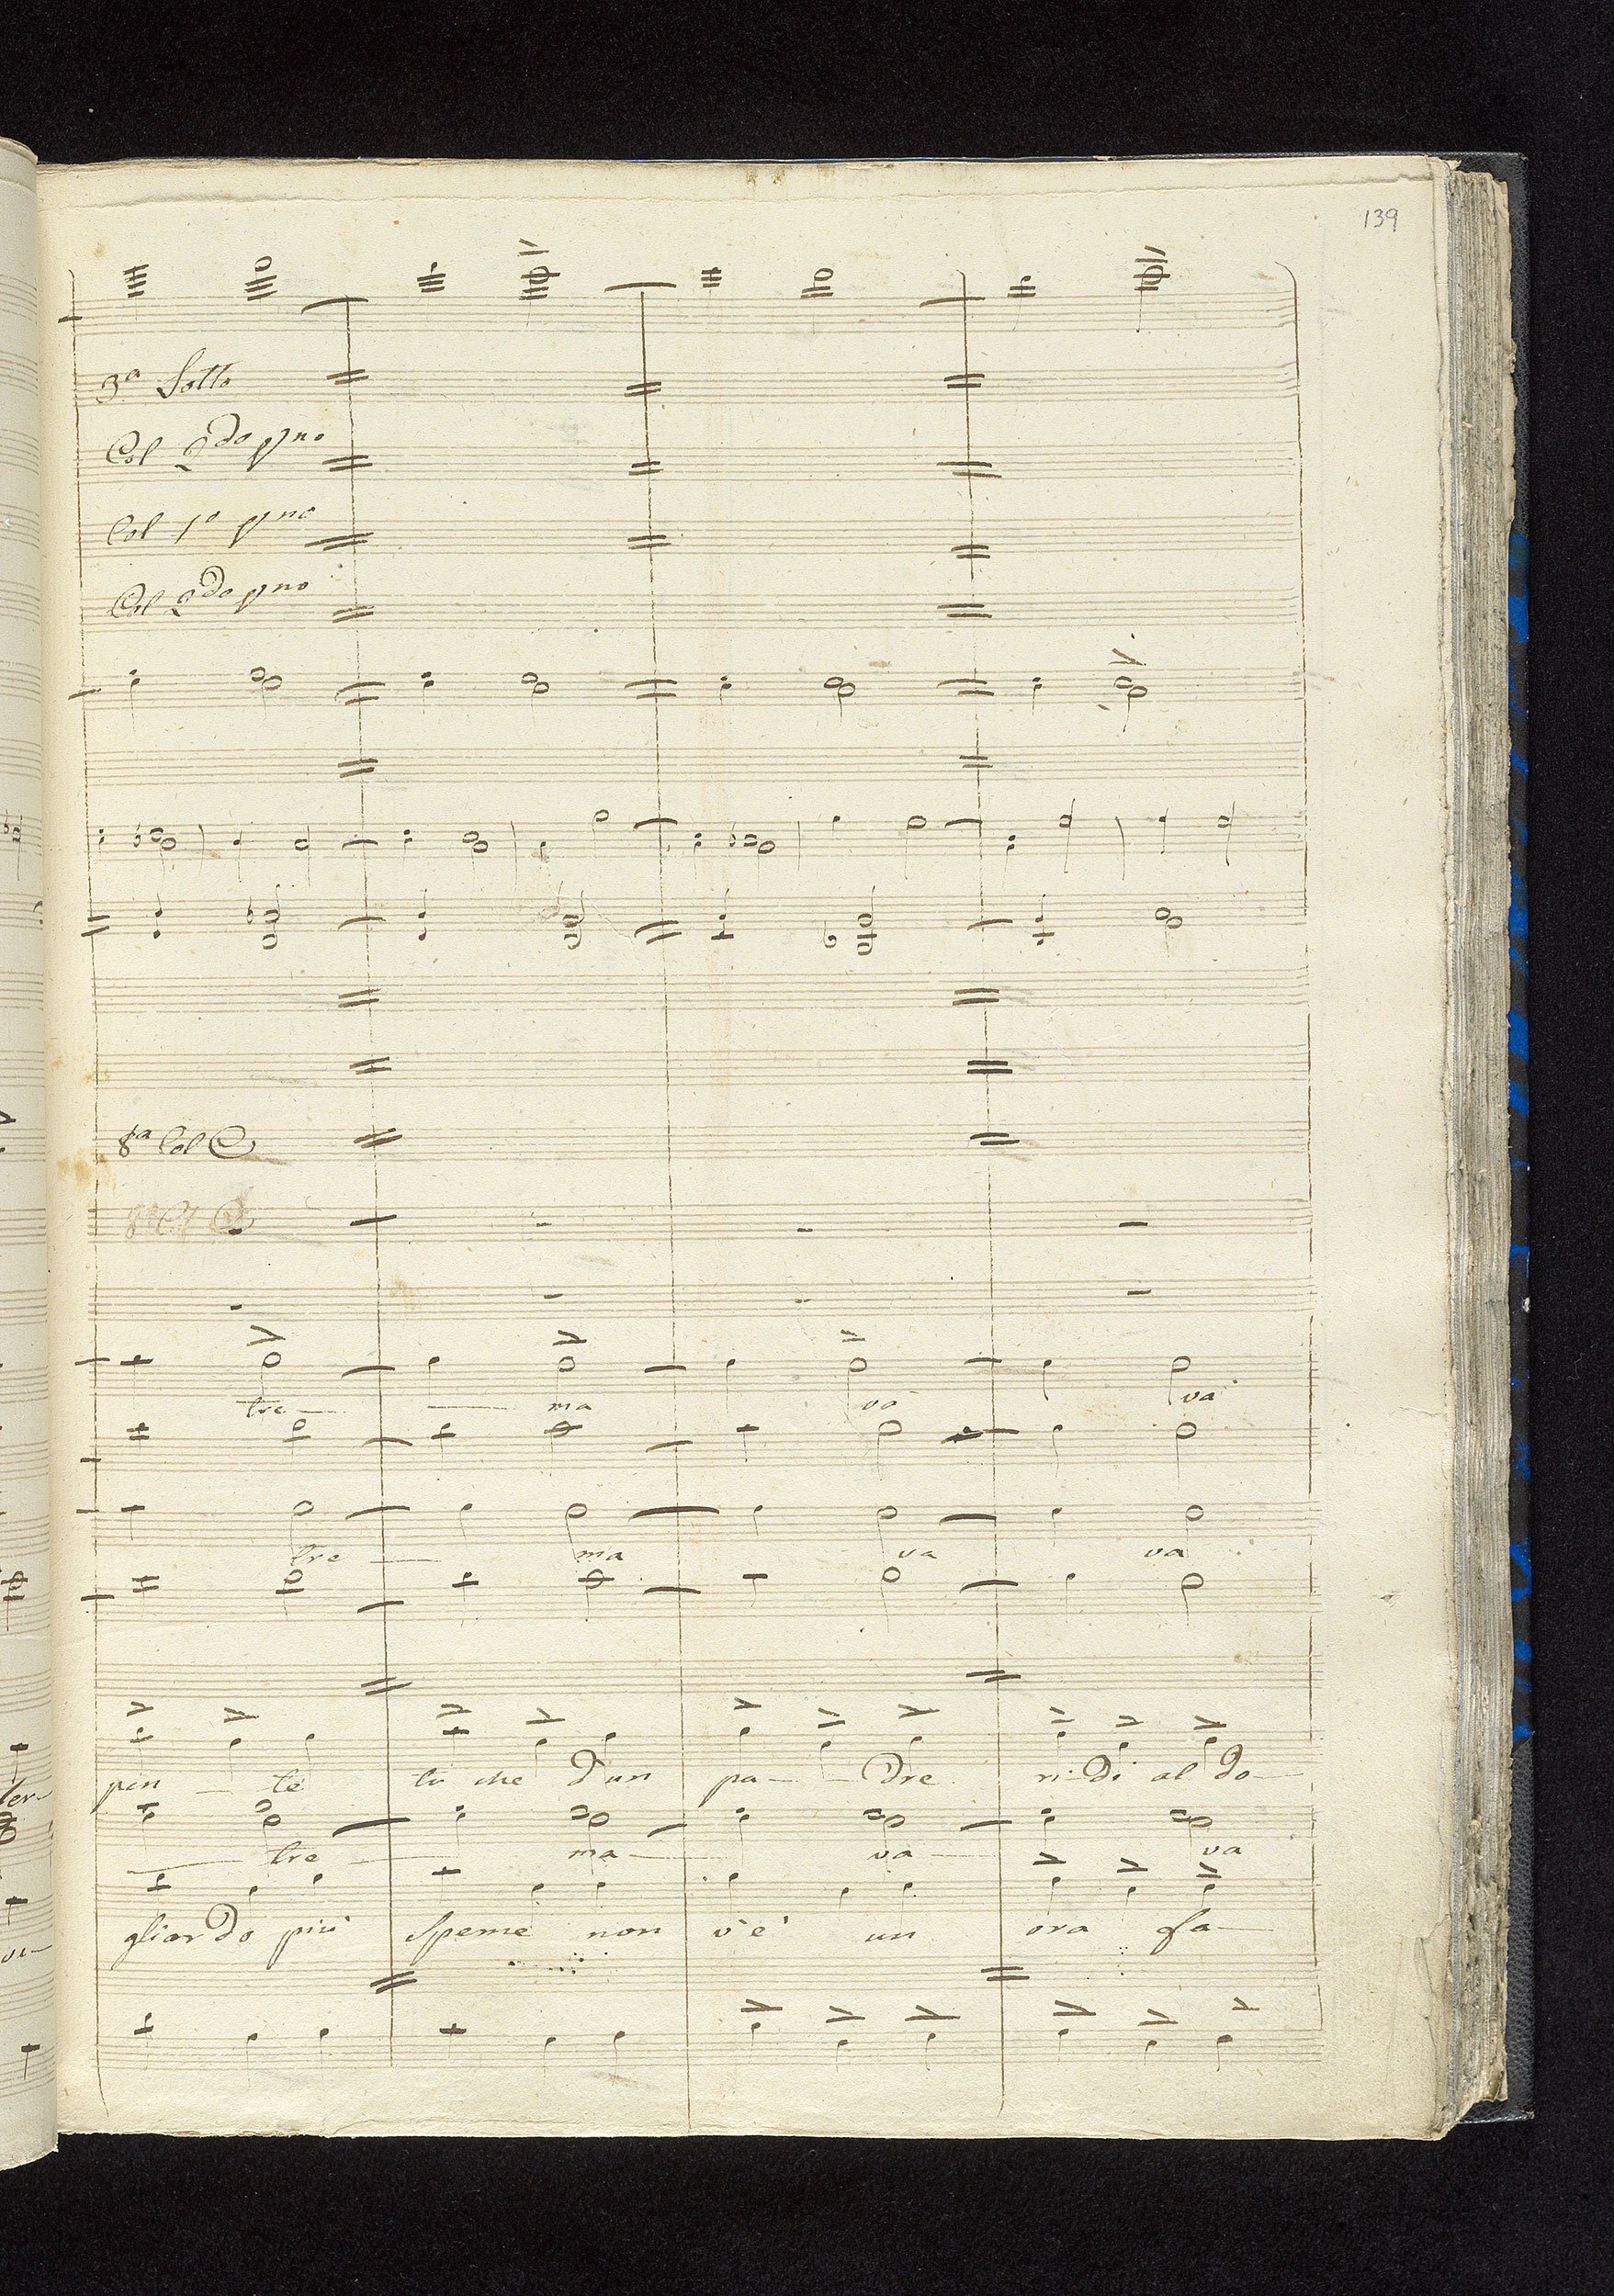 139
3ª Sotto
Col 2do
Col 1º
Col 2do
8ª Col
tre ma va va
tre ma va va
pen te tu che d'un pa dre ridi al do
tre ma va va
gliardo più speme non v'è un ora fa